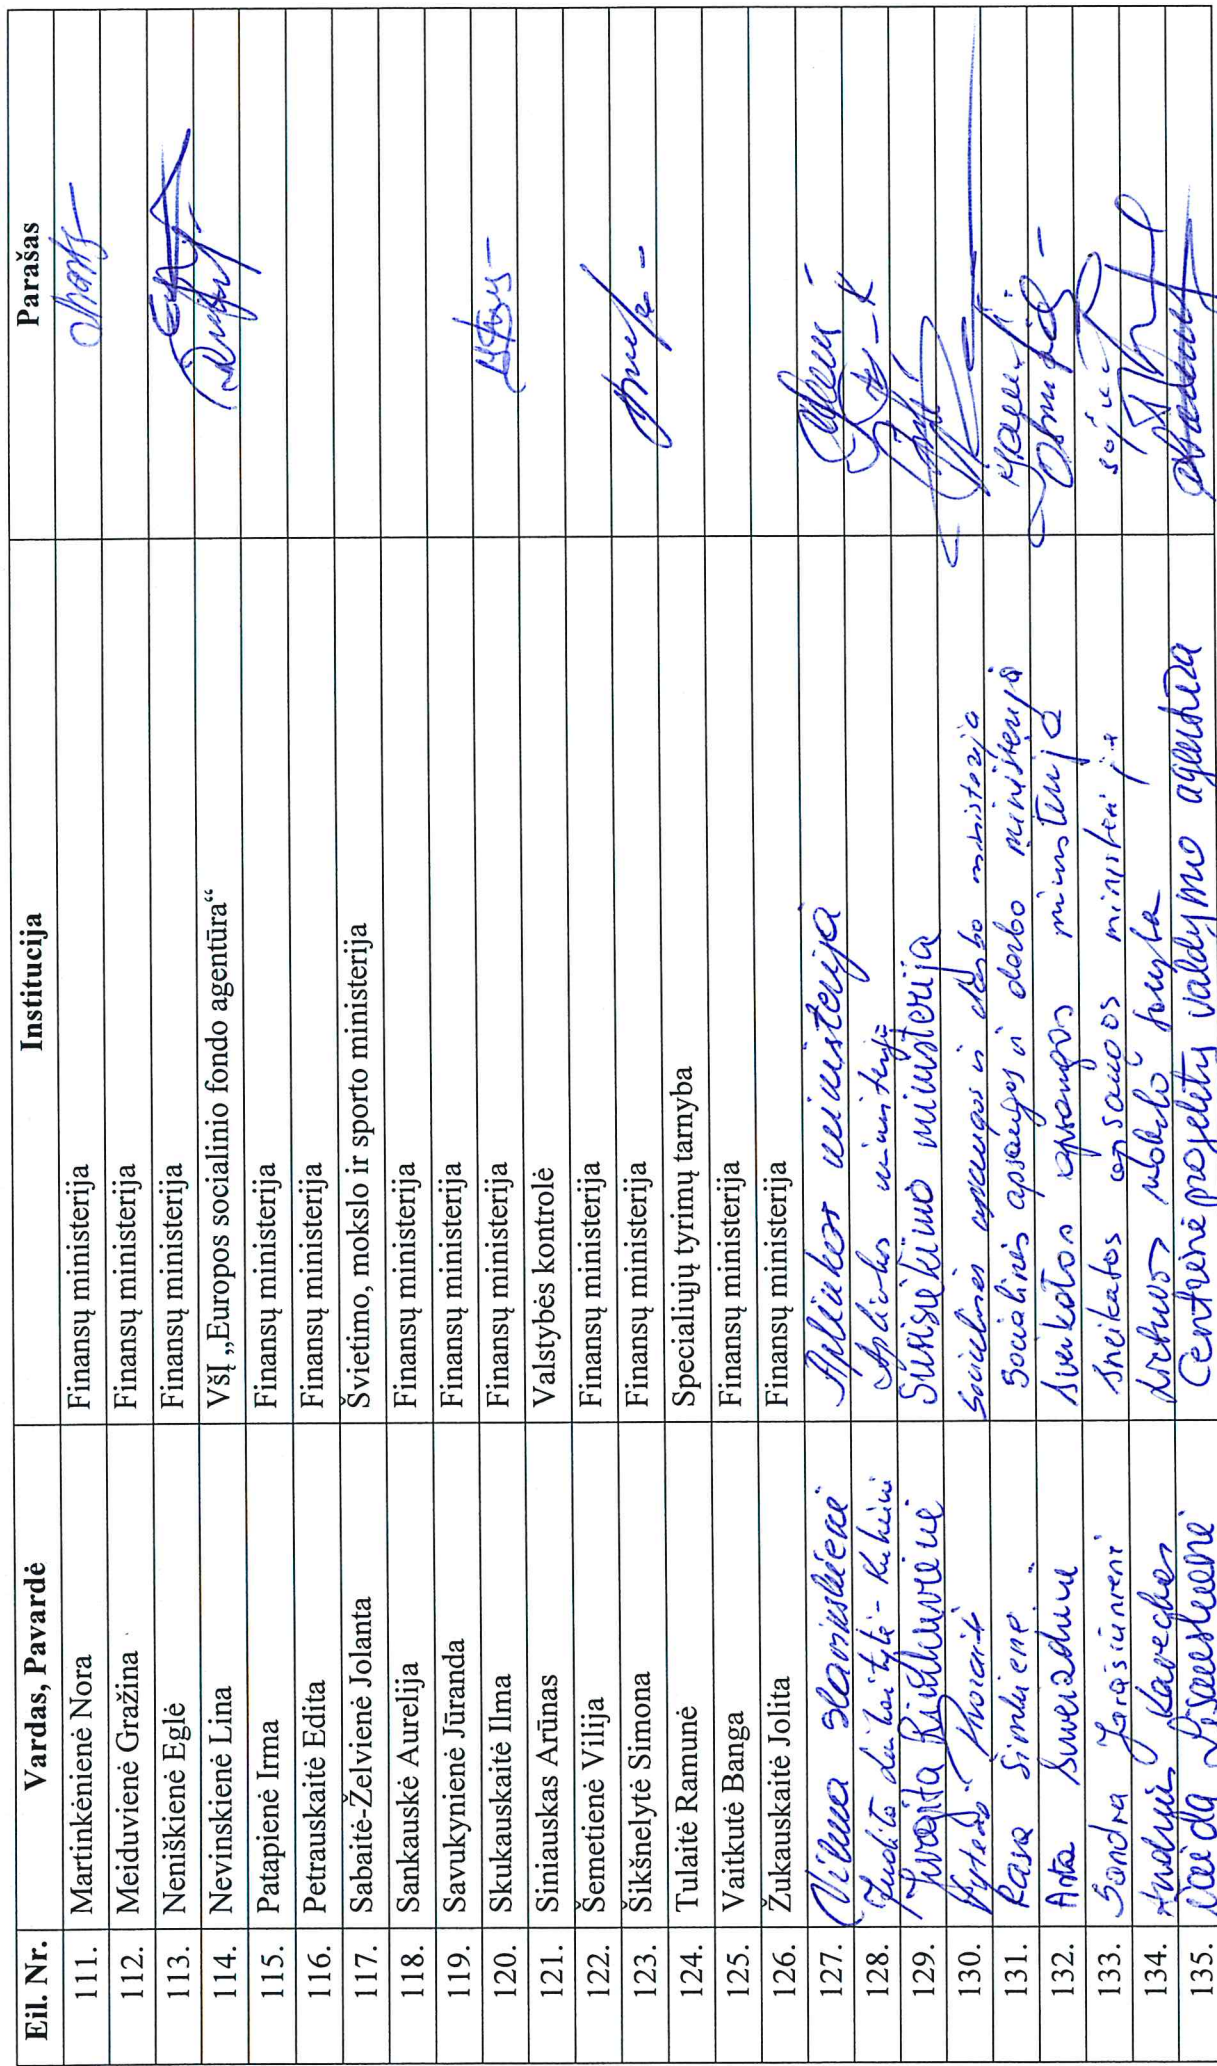 Eil. Nr. Vardas, Pavardė Institucija Parašas
111. Martinkėnienė Nora Finansų ministerija
112. Meiduvienė Gražina Finansų ministerija
113. Neniškienė Eglė Finansų ministerija
114. Nevinskienė Lina VšĮ „Europos socialinio fondo agentūra“
115. Patapienė Irma Finansų ministerija
116. Petrauskaitė Edita Finansų ministerija
117. Sabaitė-Želvienė Jolanta Švietimo, mokslo ir sporto ministerija
118. Sankauskė Aurelija Finansų ministerija
119. Savukynienė Jūranda Finansų ministerija
120. Skukauskaitė Ilma Finansų ministerija
121. Siniauskas Arūnas Valstybės kontrolė
122. Šemetienė Vilija Finansų ministerija
123. Šikšnelytė Simona Finansų ministerija
124. Tulaitė Ramunė Specialiųjų tyrimų tarnyba
125. Vaitkutė Banga Finansų ministerija
126. Žukauskaitė Jolita Finansų ministerija
127. Vilma Slavinskienė Aplinkos ministerija
128. Judita Aplinkos ministerija
129. Jurgita Susisiekimo ministerija
130. Socialinės apsaugos ir darbo ministerija
131. Rasa Simkienė Socialinės apsaugos ir darbo ministerija
132. Asta Sveikatos apsaugos ministerija
133. Sandra Sveikatos apsaugos ministerija
134. Andrius Kavechas Lietuvos mokslo taryba
135. Vaida Centrinė projektų valdymo agentūra